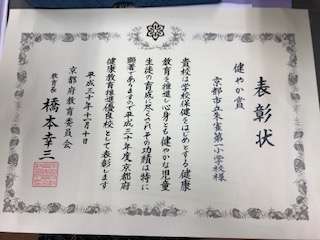 表彰状
健やか賞
京都市立朱雀第一小学校様
貴校は学校保健をはじめとする健康
教育を推進し心身ともに健やかな児童
生徒の育成に尽くされその功績は特に
顕著でありますので平成三十年度京都府
健康教育推進優良校として表彰します
平成三十年十一月十日
京都府教育委員会
教育長 橋本幸三